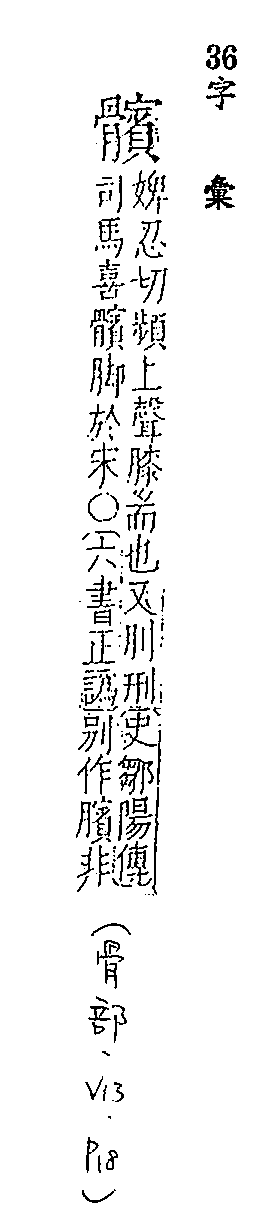 36字彙
髕婢忍切頻上聲膝耑也又刖刑史鄒陽傳
司馬喜髕脚於宋○六書正譌別作臏非
(骨部、V13.P18)